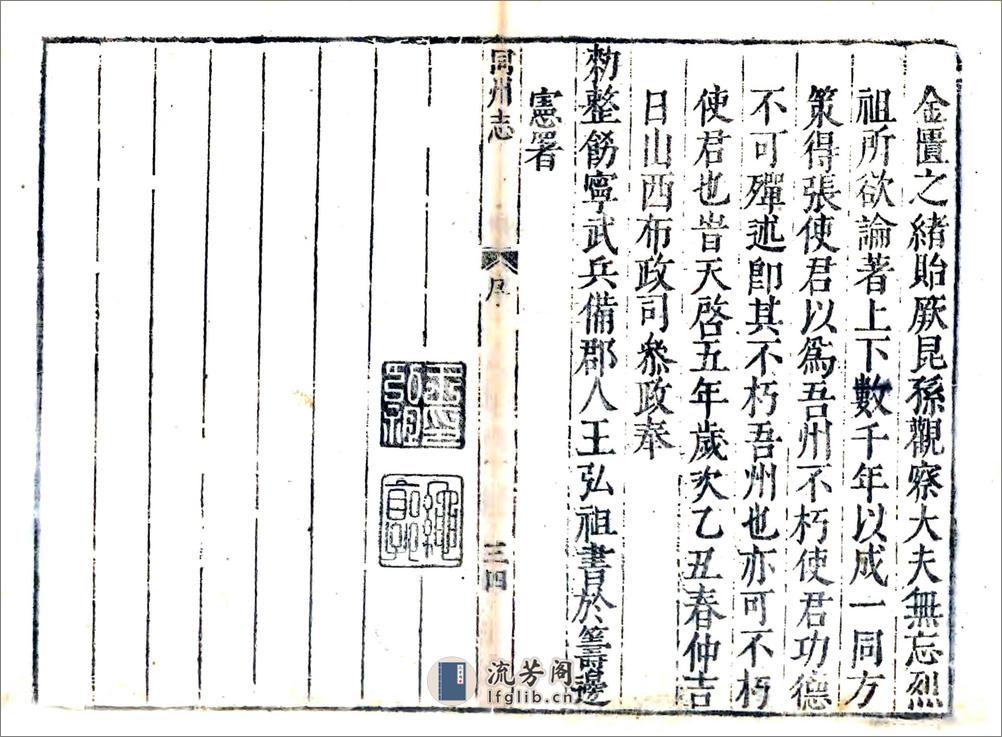 金匱之緒貽厥昆孫觀察大夫無忘烈
祖所欲論著上下數千年以成一同方
策得張使君以爲吾州不朽使君功德
不可殫述卽其不朽吾州也亦可不朽
使君也旹天啓五年歲次乙丑春仲吉
日山西布政司叅政奉
勑整飭寧武兵備郡人王弘祖書於籌邊
憲署
同州志
序
三四
王弘祖印
流芳阁
lfglib.cn